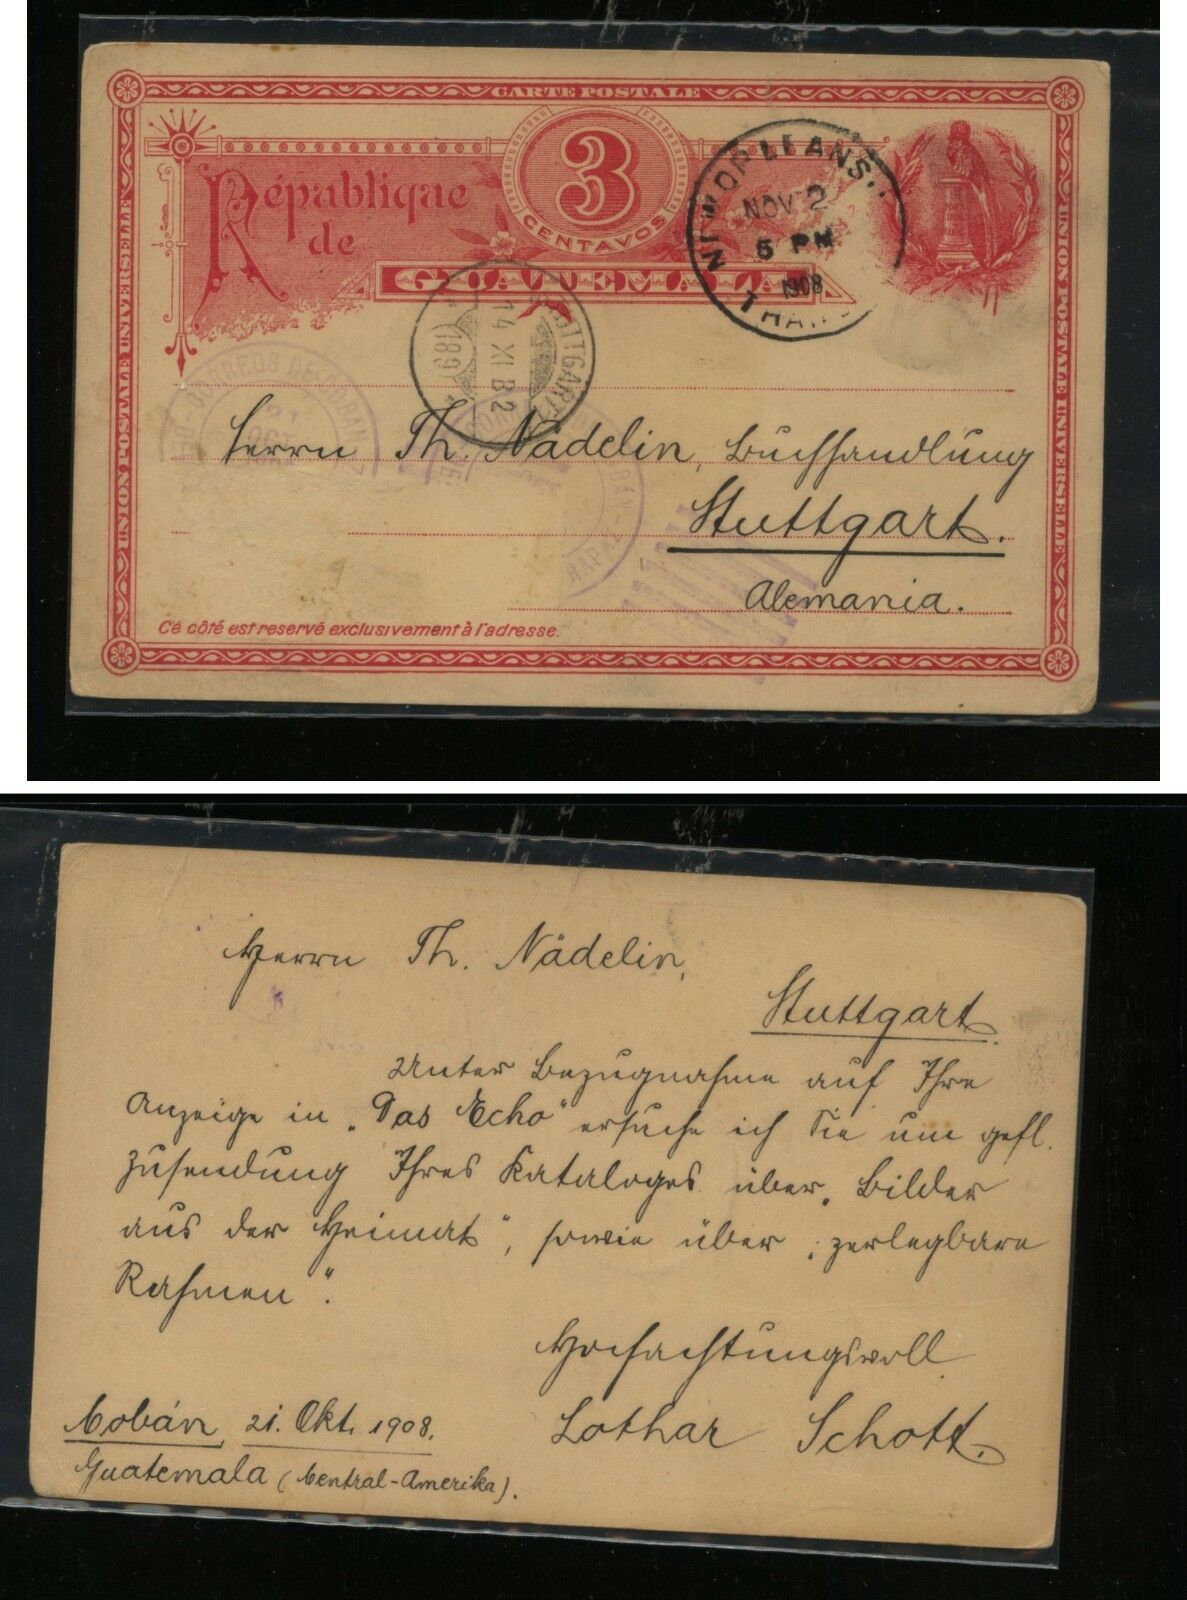 CARTE POSTALE
UNION POSTALE UNIVERSELLE
UNION POSTALE UNIVERSELLE
République
de
3
CENTAVOS
GUATEMALA
NEW ORLEANS
NOV 2
5 PM
1908
TRANS
STUTTGART
14 XI 8-2
CORREOS DE COBAN
OCT
Herrn Th. Nädelin, Buchhandlung
Stuttgart.
Alemania.
Ce côté est reservé exclusivement à l'adresse.
Herrn Th. Nädelin,
Stuttgart.
Unter Bezugnahme auf Ihre
Anzeige in „Das Echo" ersuche ich Sie um gefl.
Zusendung Ihres Kataloges über „Bilder
aus der Heimat", sowie über „zerlegbare
Rahmen".
Hochachtungsvoll
Lothar Schott.
Cobán, 21. Okt. 1908.
Guatemala (Central-Amerika).